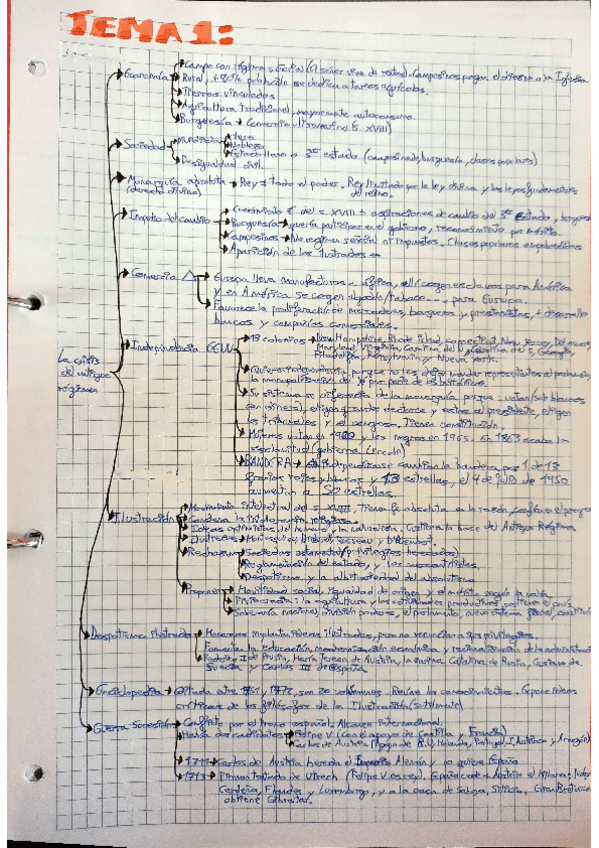 TEMA 1:
La crisis del antiguo régimen
Economía
Campo con régimen señorial (el señor vive de rentas). Campesinos pagan el diezmo a la Iglesia
Rural, +80% población se dedica a tareas agrícolas.
Tierras vinculadas
Agricultura tradicional, mayormente autoconsumo.
Burguesía → Comercio ultramarino (s. XVIII)
Sociedad
Clero
Nobleza
Estado llano o 3er estado (campesinado, burguesía, clases populares)
Desigualdad civil.
Monarquía absoluta → Rey = todo el poder. Rey limitado por la ley divina y las leyes fundamentales
(derecho divino) del reino.
Impulso del cambio
Crecimiento € del s. XVIII + aspiraciones de cambio del 3er Estado, burguesía
Burguesía → quería participar en el gobierno, reconocimiento por mérito.
Campesinos → No régimen señorial ni impuestos. Clases populares empobrecidas
Aparición de los ilustrados
Comercio △
Europa lleva manufacturas a África, allí cogen esclavos para América
y en América se cogen algodón/tabaco... para Europa.
Favorece la proliferación de mercaderes, banqueros y prestamistas, + desarrollo
bancos y compañías comerciales.
Independencia EEUU
13 colonias → New Hampshire, Rhode island, connecticut, New Jersey, Delaware,
Maryland, Virginia, Carolina del N, Carolina del S, Georgia,
Pensylvania y Nueva York.
Quieren independencia porque no les dejan mandar representantes al parlamento,
la monopolización del té por parte de los británicos.
Su sistema se diferencia de la monarquía porque: votan (sólo blancos
con dinero), eligen grandes electores y estos al presidente, eligen
los tribunales y el congreso. Tienen constitución.
Mujeres votan en 1920 y los negros en 1965. En 1863 acaba la
esclavitud (gobierna Lincoln)
BANDERA → Al independizarse cambian la bandera por 1 de 13
franjas rojas y blancas y 13 estrellas, el 4 de julio de 1950
aumentan a 50 estrellas.
Ilustración
Movimiento intelectual del s. XVIII, tienen fe absoluta en la razón, confían en el progreso
Condena la intolerancia religiosa.
Ideas optimistas del humano y la naturaleza. Critica la base del Antiguo Régimen
Ilustrados → Montesquieu, Diderot, Rousseau y D'Alembert.
Rechazan
Sociedad estamental (privilegios heredados)
Reglamentación del estado, y los mercantilistas.
Despotismo y la arbitrariedad del absolutismo
Proponen
Movilidad social, igualdad de origen y el mérito según la valía
Fisiocracia: la agricultura y las actividades productivas, sostienen el país
Soberanía nacional, división poderes, el parlamento, nuevo sistema fiscal, constitución
Despotismo ilustrado
Monarcas implantan ideas ilustradas, pero no renuncian a sus privilegios.
Fomenta la educación, modernización económica y racionalización de la administración
Federico II de Prusia, María Teresa de Austria, la zarina Catalina de Rusia, Gustavo de
Suecia y Carlos III de España
Enciclopedia → editada entre 1751 y 1772, son 28 volúmenes. Reúne los conocimientos. Expone ideas
críticas de los filósofos de la Ilustración
Guerra Sucesión
Conflicto por el trono español. Alcance internacional.
Había dos candidatos
Felipe V (Con el apoyo de Castilla y Francia)
Carlos de Austria (Apoyo de Holanda, Portugal, Austria y Aragón)
1711 → Carlos de Austria hereda el Imperio Alemán y no quiere España
1713 → Firman tratado de Utrech (Felipe V es rey). España cede a Austria el Milanesado,
Cerdeña, Flandes y Luxemburgo, y a la casa de Saboya, Sicilia. Gran Bretaña
obtiene Gibraltar.